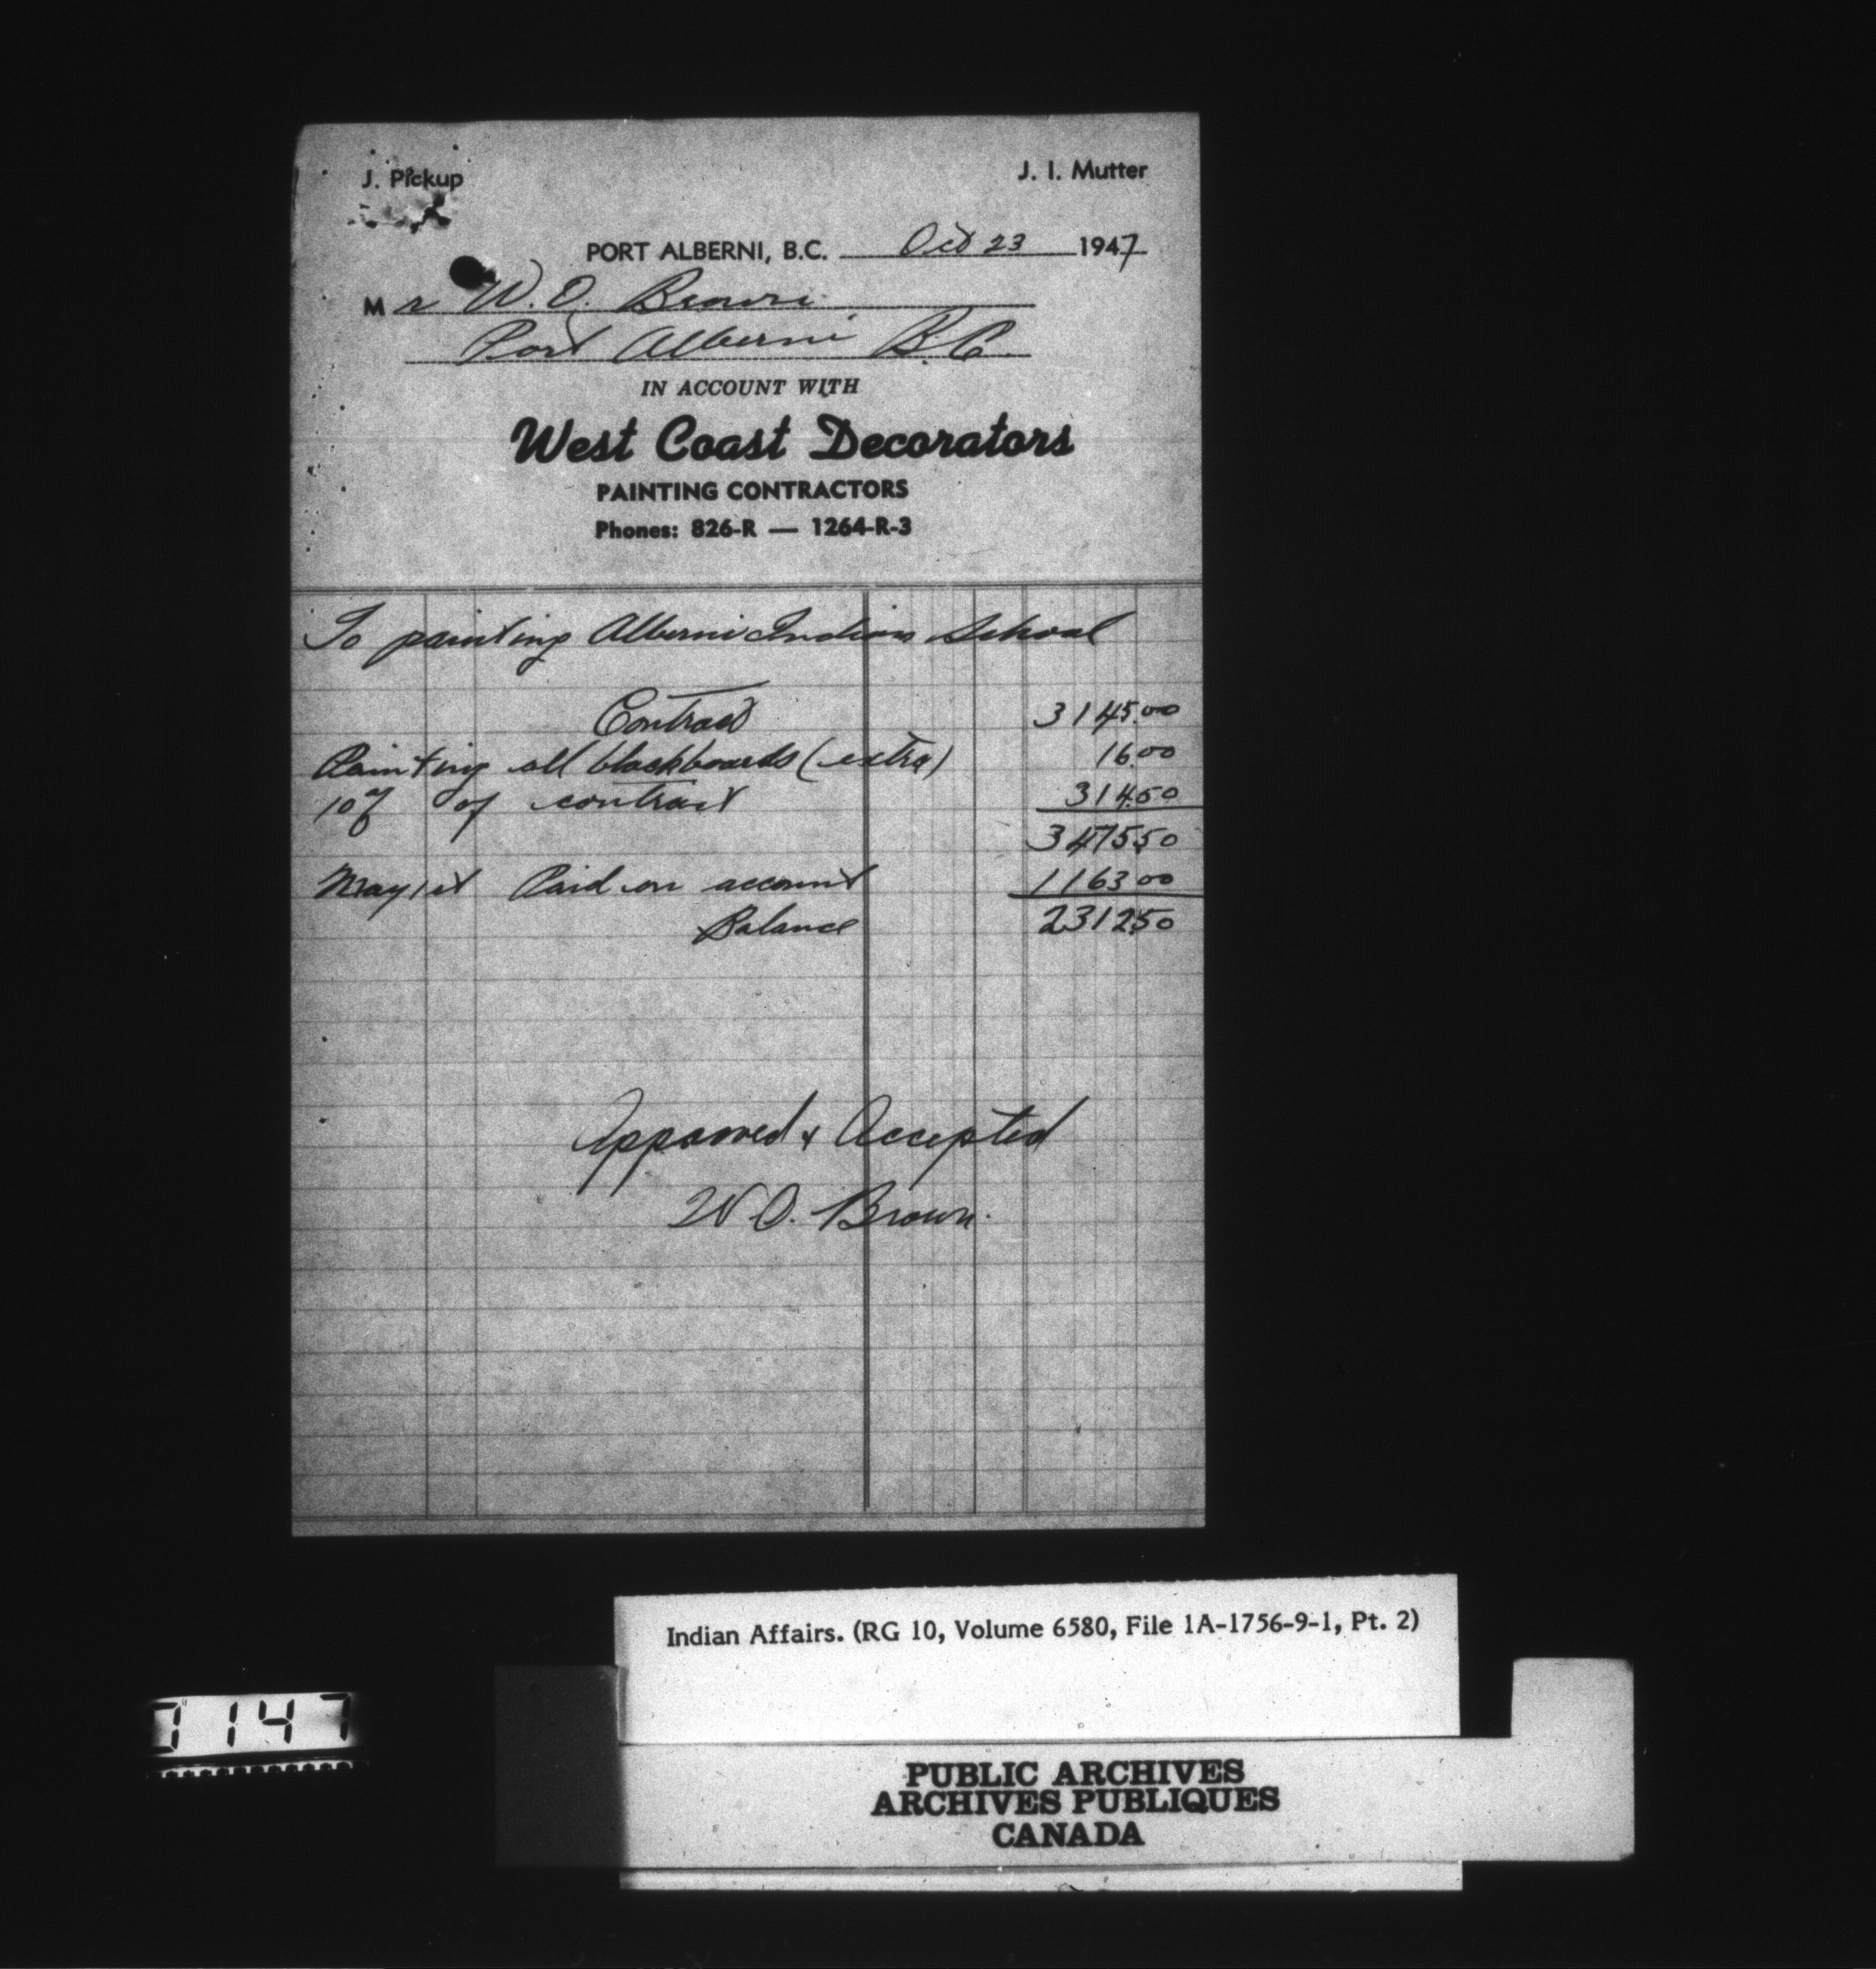 J. Pickup J. I. Mutter
PORT ALBERNI, B.C. Oct 23 1947
Mr W. O. Brown
Port Alberni B.C.
IN ACCOUNT WITH
West Coast Decorators
PAINTING CONTRACTORS
Phones: 826-R — 1264-R-3
To painting Alberni Indian School
Contract 3145.00
Painting all blackboards (extra) 16.00
10% of contract 314.50
3475.50
May 1st Paid on account 1163 00
Balance 2312.50
Approved & Accepted
W O. Brown.
Indian Affairs. (RG 10, Volume 6580, File 1A-1756-9-1, Pt. 2)
0147
PUBLIC ARCHIVES
ARCHIVES PUBLIQUES
CANADA